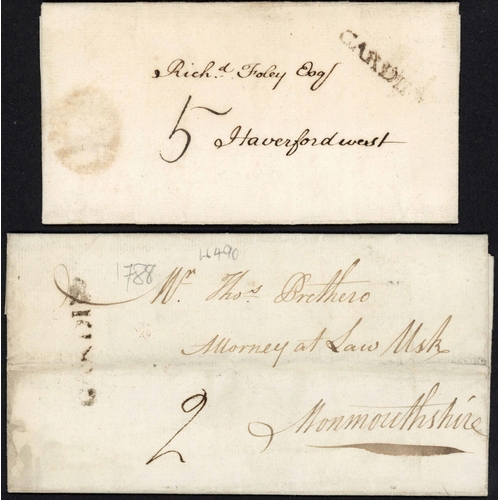 CARDIFF
Rich.d Foley Esq/
5
Haverfordwest
1788
W490
Mr. Tho.s Prothero
Attorney at Law Usk
2
Monmouthshire